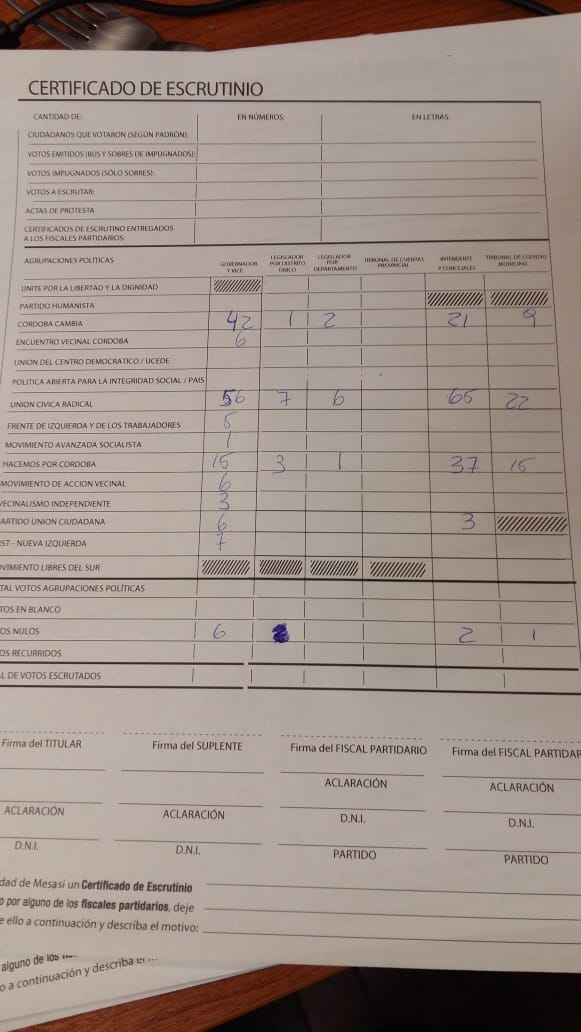 CERTIFICADO DE ESCRUTINIO
CANTIDAD DE: EN NÚMEROS: EN LETRAS:
CIUDADANOS QUE VOTARON (SEGÚN PADRÓN):
VOTOS EMITIDOS (BUS Y SOBRES DE IMPUGNADOS):
VOTOS IMPUGNADOS (SÓLO SOBRES):
VOTOS A ESCRUTAR:
ACTAS DE PROTESTA
CERTIFICADOS DE ESCRUTINO ENTREGADOS
A LOS FISCALES PARTIDARIOS:
AGRUPACIONES POLÍTICAS GOBERNADOR Y VICE LEGISLADOR POR DISTRITO ÚNICO LEGISLADOR POR DEPARTAMENTO TRIBUNAL DE CUENTAS PROVINCIAL INTENDENTE Y CONCEJALES TRIBUNAL DE CUENTAS MUNICIPAL
UNITE POR LA LIBERTAD Y LA DIGNIDAD
PARTIDO HUMANISTA
CORDOBA CAMBIA 42 1 2 21 9
ENCUENTRO VECINAL CORDOBA 6
UNION DEL CENTRO DEMOCRATICO / UCEDE
POLITICA ABIERTA PARA LA INTEGRIDAD SOCIAL / PAIS
UNION CIVICA RADICAL 56 7 6 65 22
FRENTE DE IZQUIERDA Y DE LOS TRABAJADORES 5
MOVIMIENTO AVANZADA SOCIALISTA 1
HACEMOS POR CORDOBA 15 3 1 37 15
MOVIMIENTO DE ACCION VECINAL 6
VECINALISMO INDEPENDIENTE 3
PARTIDO UNION CIUDADANA 6 3
ST - NUEVA IZQUIERDA 7
OVIMIENTO LIBRES DEL SUR
TAL VOTOS AGRUPACIONES POLÍTICAS
TOS EN BLANCO
OS NULOS 6 2 1
OS RECURRIDOS
L DE VOTOS ESCRUTADOS
Firma del TITULAR Firma del SUPLENTE Firma del FISCAL PARTIDARIO Firma del FISCAL PARTIDAR
ACLARACIÓN ACLARACIÓN ACLARACIÓN ACLARACIÓN
D.N.I. D.N.I. D.N.I. D.N.I.
PARTIDO PARTIDO
dad de Mesasi un Certificado de Escrutinio
o por alguno de los fiscales partidarios, deje
e ello a continuación y describa el motivo:
alguno de los
o a continuación y describa